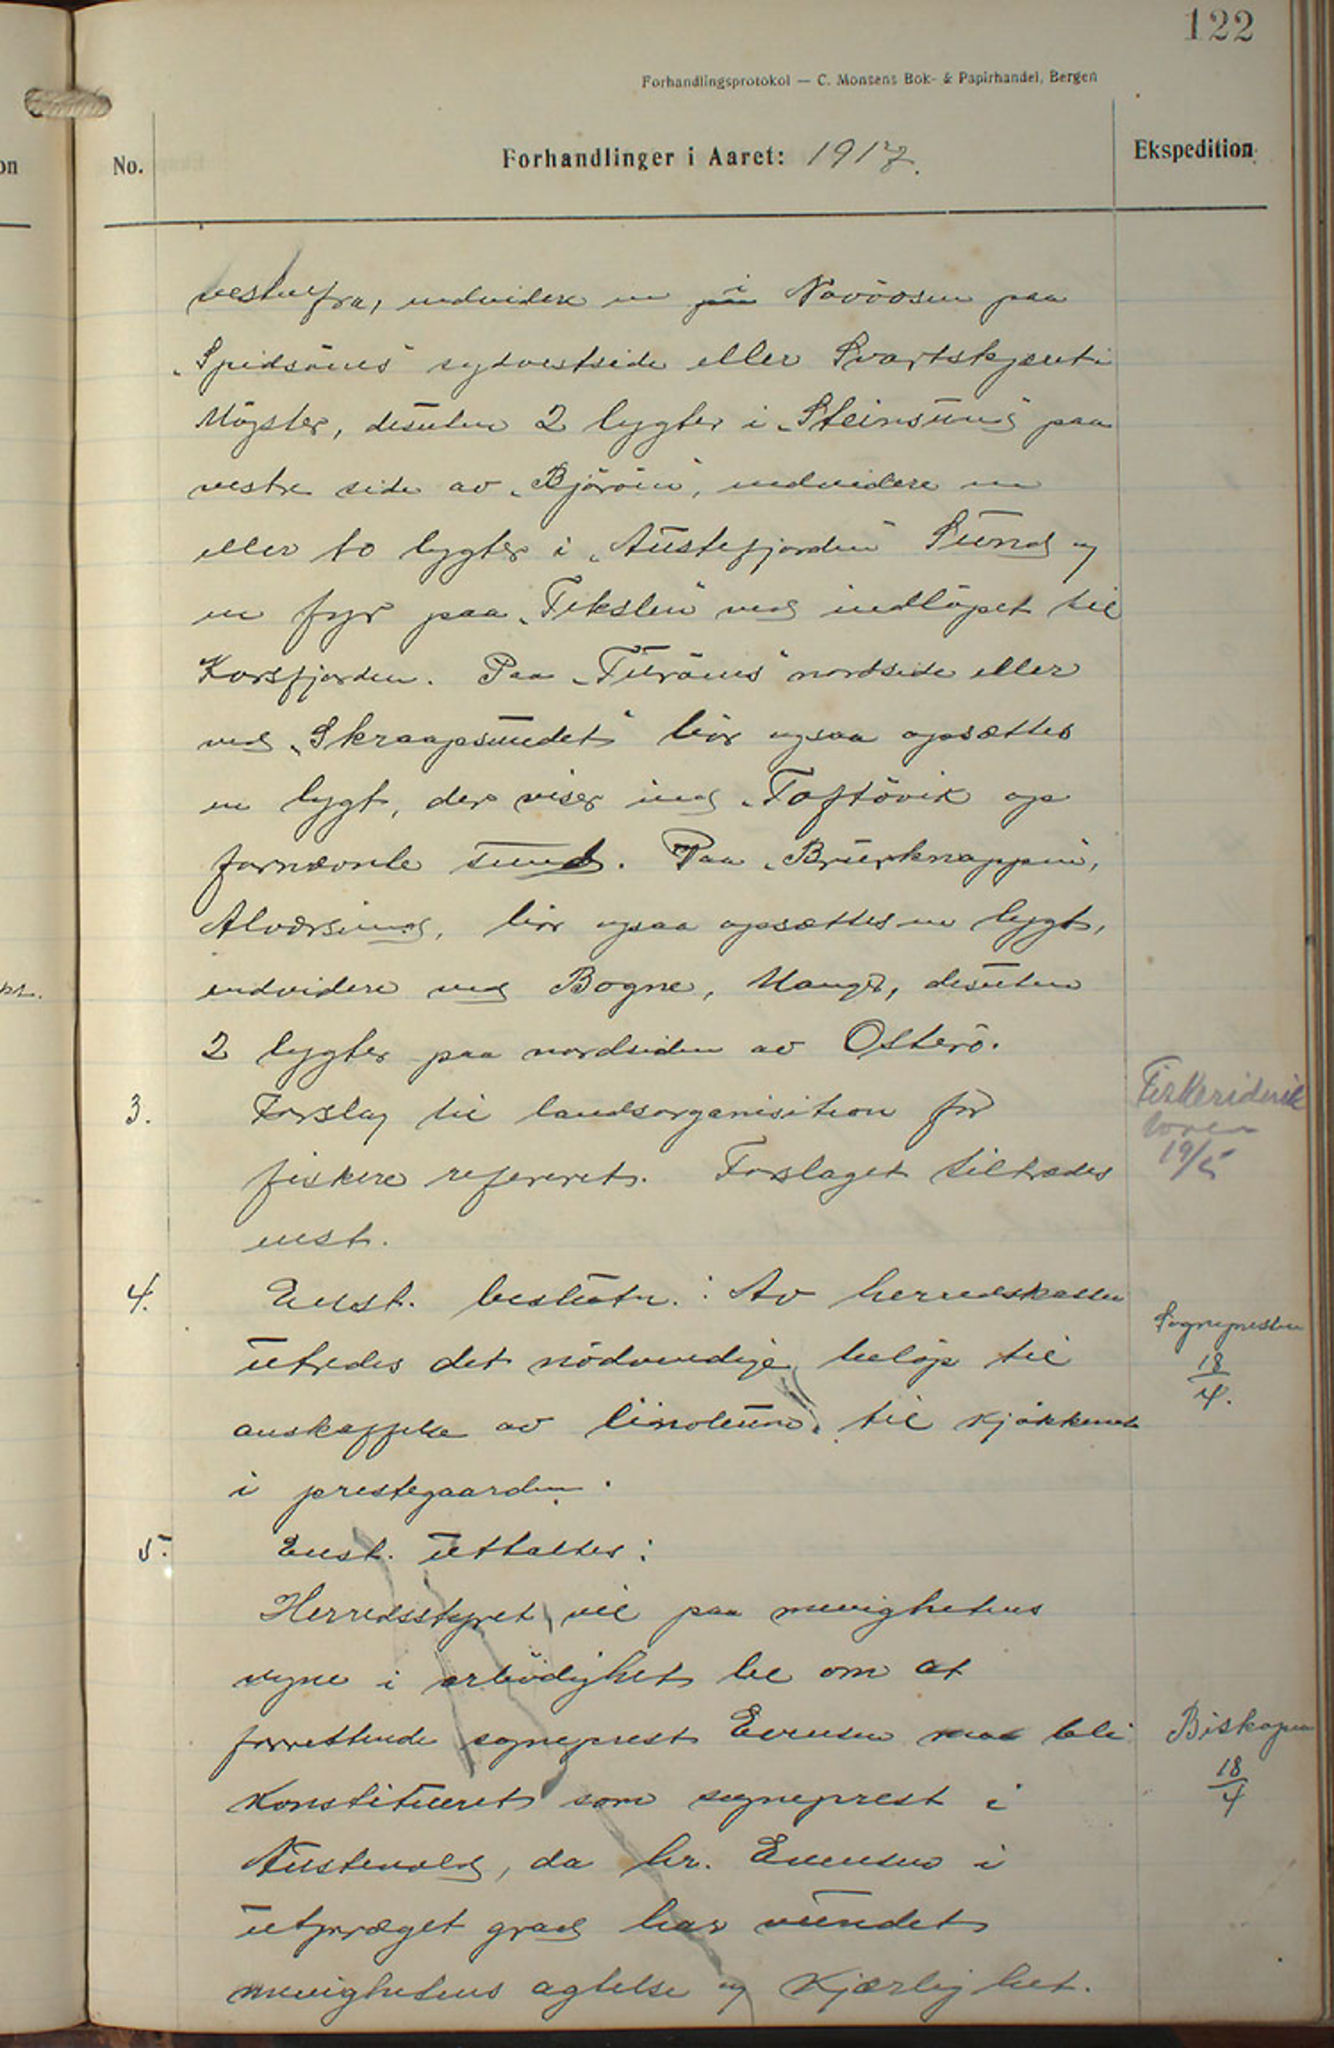 122
Forhandlingsprotokol — C. Monsens Bok- & Papirhandel, Bergen
on
No.
Forhandlinger i Aaret: 1917.
Ekspedition
vestenfra, endvidere en i Novöosen paa
"Spidsöens" sydvestside eller Svartskjæret i
Mögster, desuten 2 lygter i "Steinsund" paa
vestre side av "Björöen", endvidere en
eller to lygter i "Austefjorden" Sund og
en fyr paa "Tekslen" ved indlöpet til
Korsfjorden. Paa "Turöens" nordside eller
ved "Skraapsundet" bör ogsaa opsættes
en lygt, der viser ind "Toftövik" og
fornævnte sund. Paa "Bruerknappen",
Alværsund, bör ogsaa opsættes en lygt,
endvidere ved Bogne, Manger, desuten
2 lygter paa nordsiden av Osterö.
3. Forslag til landsorganisition for
fiskere referert. Forslaget tiltrædes
enst.
Fiskeridirek
toren
19/5
4. Enst. beslutn.: Av herredskassen
utredes det nödvendige belöp til
anskaffelse av linoleum til kjökkenet
i prestegaarden.
Sognepresten
18
4.
5. Enst. uttaltes:
Herredsstyret vil paa menighetens
vegne i ærbödighet be om at
forrettende sogneprest Evensen maa bli
konstitueret som sogneprest i
Austevold, da hr. Evensen i
utpræget grad har vundet
menighetens agtelse og kjærlighet.
Biskopen
18
4